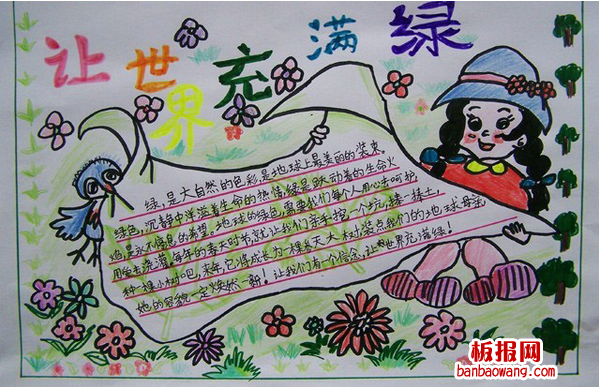 让世界充满绿
绿,是大自然的色彩,是地球上最美丽的装束。
绿色,沉静中洋溢着生命的热情,绿是跃动着的生命火
焰,是永不停息的希望。地球的绿色需要我们每个人用心去呵护,
用爱去浇灌。每年的春天时节,就让我们亲手挖一个坑,捧一捧土,
种一棵小树吧,来年,它将成长为一棵参天大树,装点我们的地球母亲,
她的容貌一定焕然一新!让我们有一个信念,让世界充满绿!
板报网
banbaowang.com